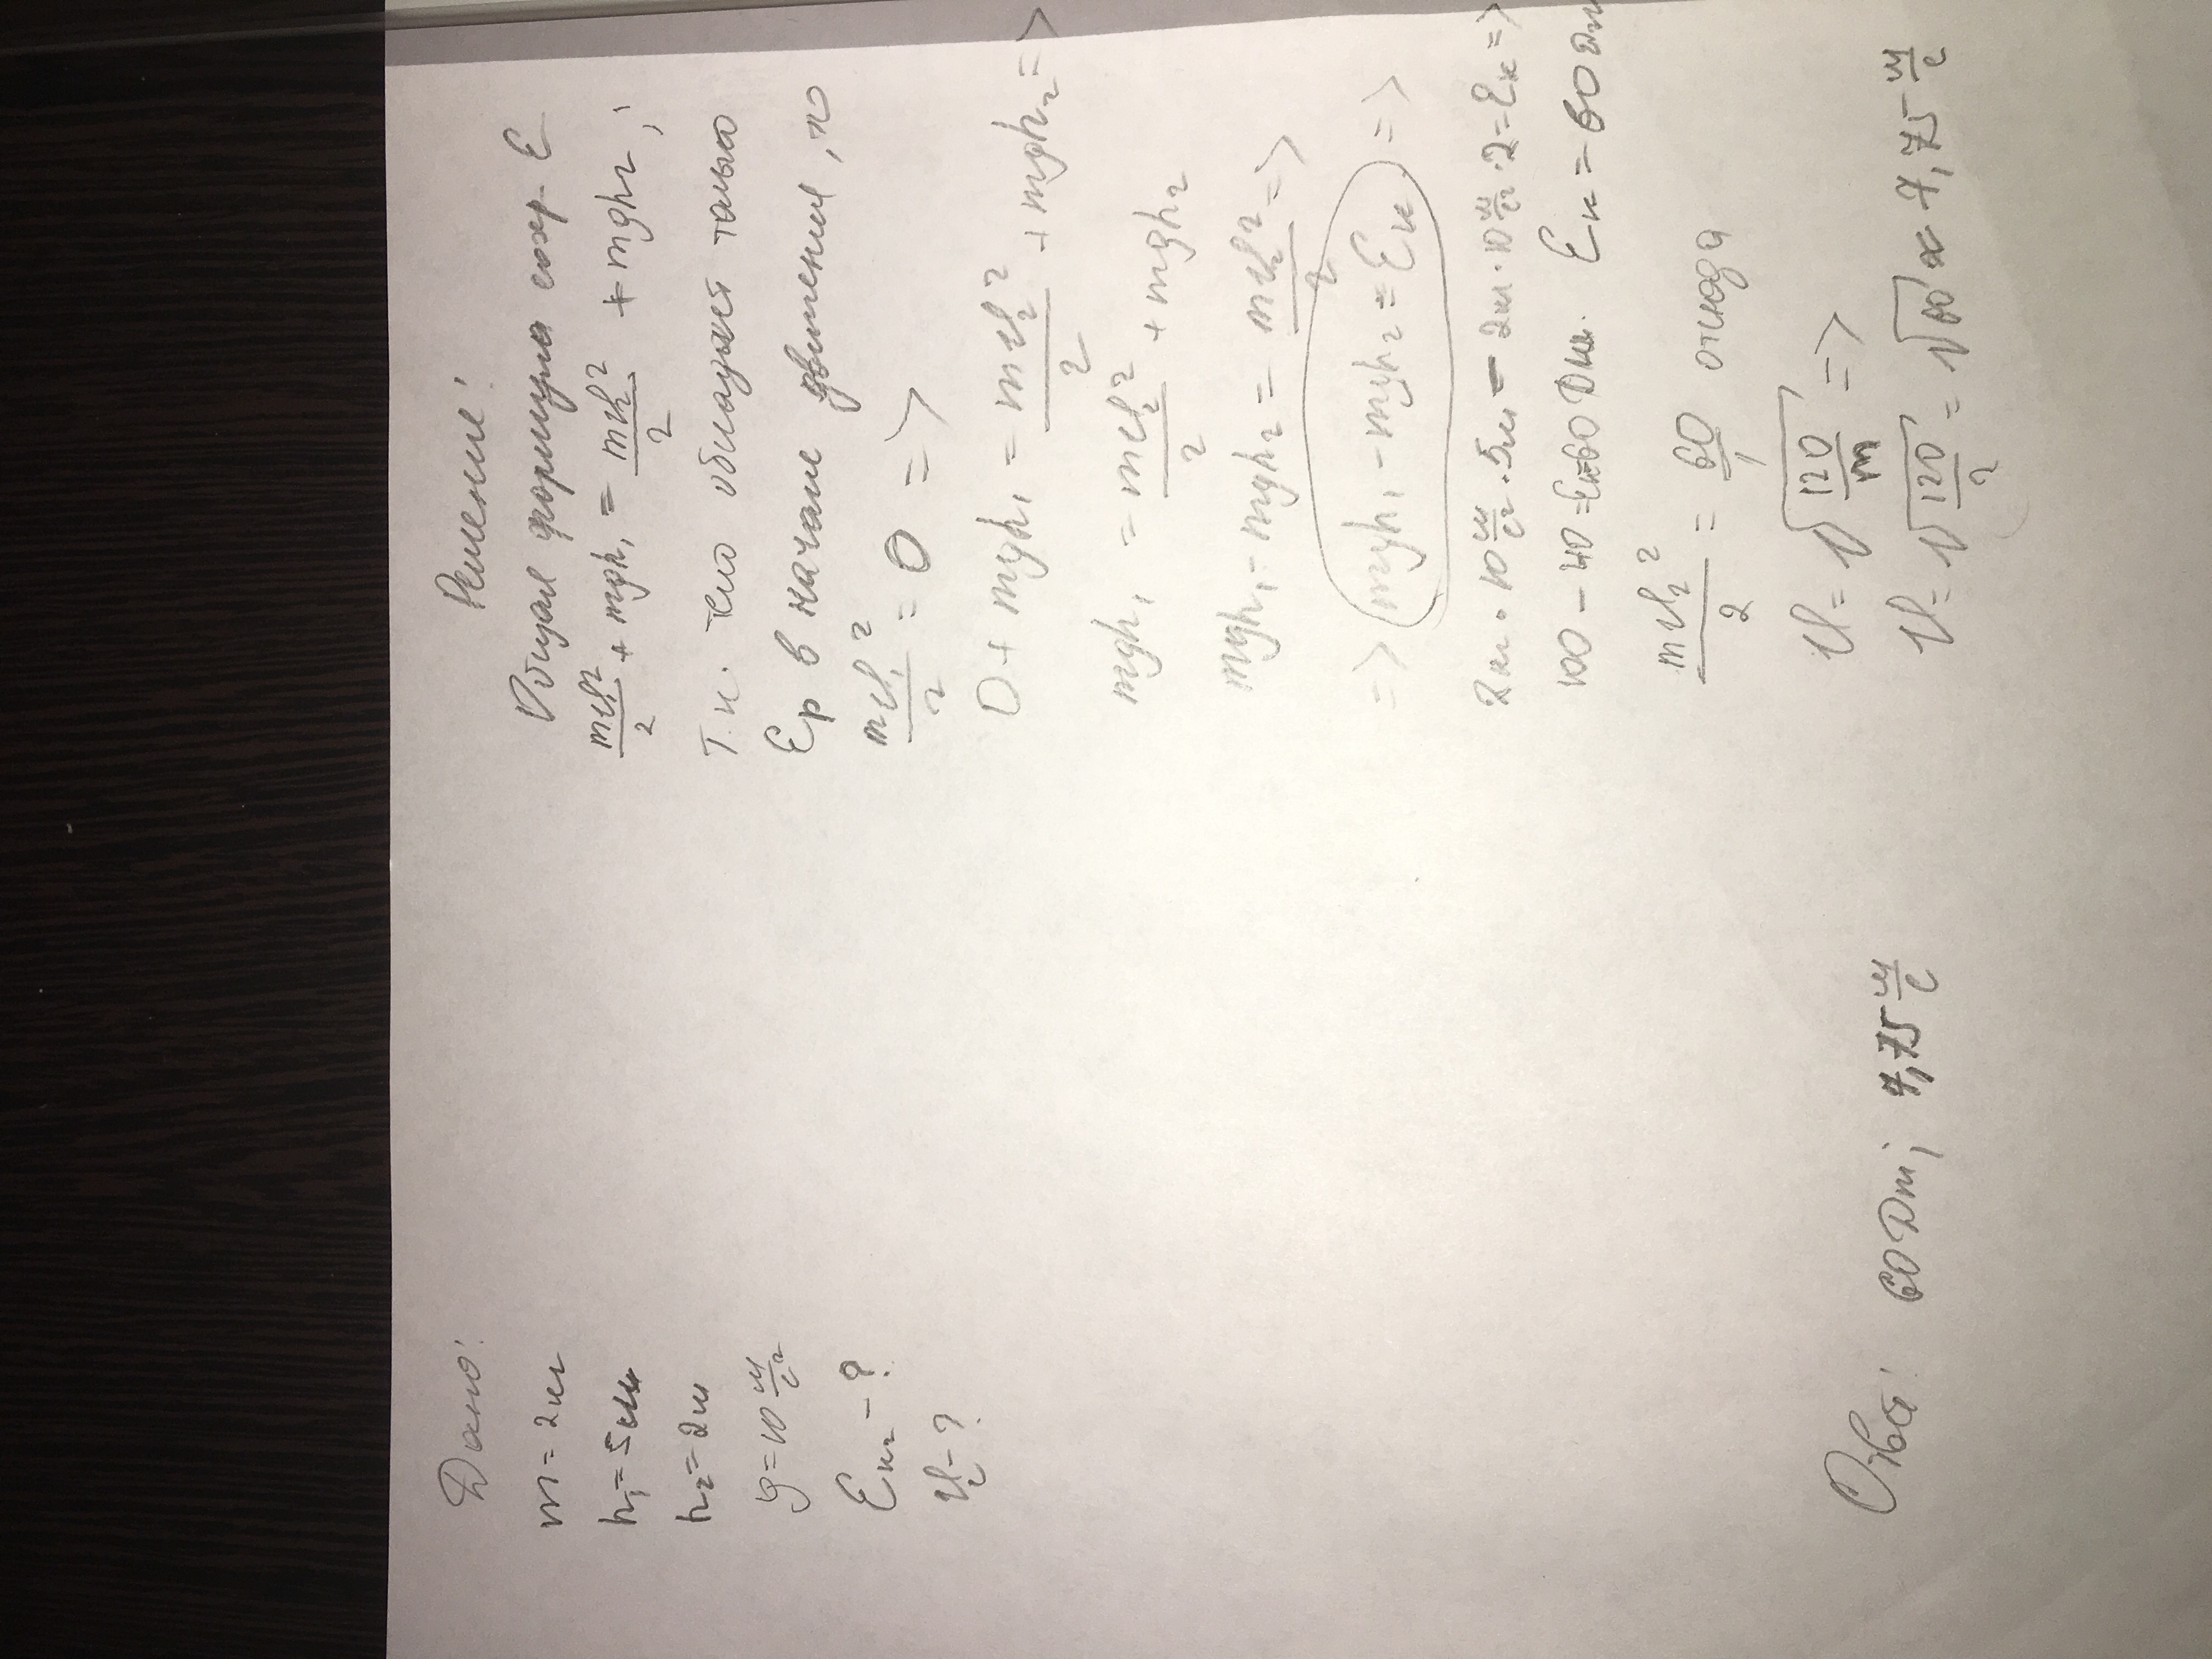 Дано:
m = 2кг
h₁ = 5м
h₂ = 2м
g = 10 м/с²
Eк₂ - ?
V₂ - ?
Решение:
Общая формула сохр. E
mV₁²/2 + mgh₁ = mV₂²/2 + mgh₂;
Т.к. тело обладает только
Eр в начале движения, то
mV₁²/2 = 0 =>
0 + mgh₁ = mV₂²/2 + mgh₂ =>
mgh₁ = mV₂²/2 + mgh₂
mgh₁ - mgh₂ = mV₂²/2 =>
=> mgh₁ - mgh₂ = Eк =>
2кг · 10 м/с² · 5м - 2кг · 10 м/с² · 2 = Eк =>
100 - 40 = Eк = 60 Дж. Eк = 60 Дж
mV₂²/2 = 60/1 откуда
V = √120/m =>
V = √120/2 = √60 ≈ 7,75 м/с
Ответ: 60 Дж; 7,75 м/с